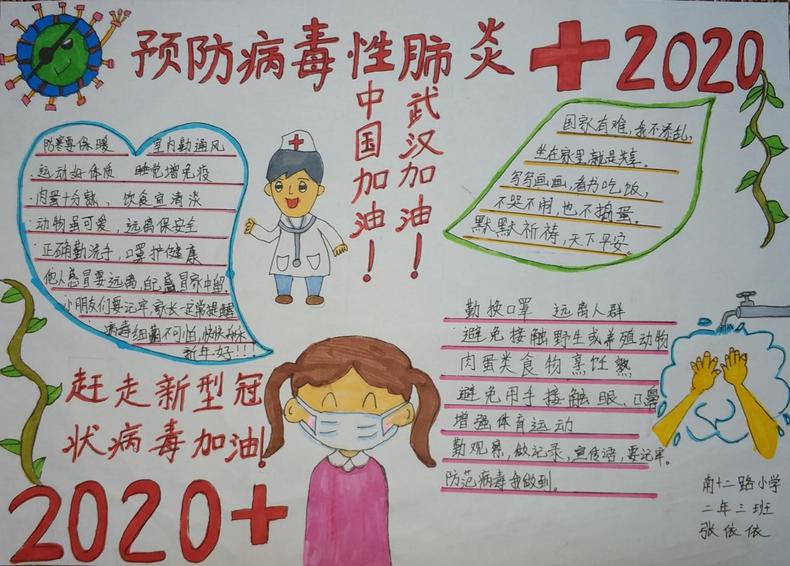 预防病毒性肺炎
2020
中国加油！
武汉加油！
防寒要保暖 室内勤通风
运动好体质 睡觉增免疫
肉蛋十分熟、饮食宜清淡
动物虽可爱，远离保安全
正确勤洗手，口罩护健康
他人感冒要远离，自己感冒家中留。
小朋友们要记牢，家长一定常提醒
病毒细菌不可怕，快快乐乐
新年好！！！
国家有难，我不添乱，
坐在家里就是共享。
写写画画，看书吃饭，
不哭不闹，也不捣蛋。
默默祈祷，天下平安。
赶走新型冠
状病毒加油！
2020
勤换口罩 远离人群
避免接触野生或养殖动物
肉蛋类食物烹饪熟
避免用手接触眼、口鼻
增强体育运动
勤观察，做记录，宣传语，要记牢。
防范病毒 做到。
南十二路小学
二年三班
张依依